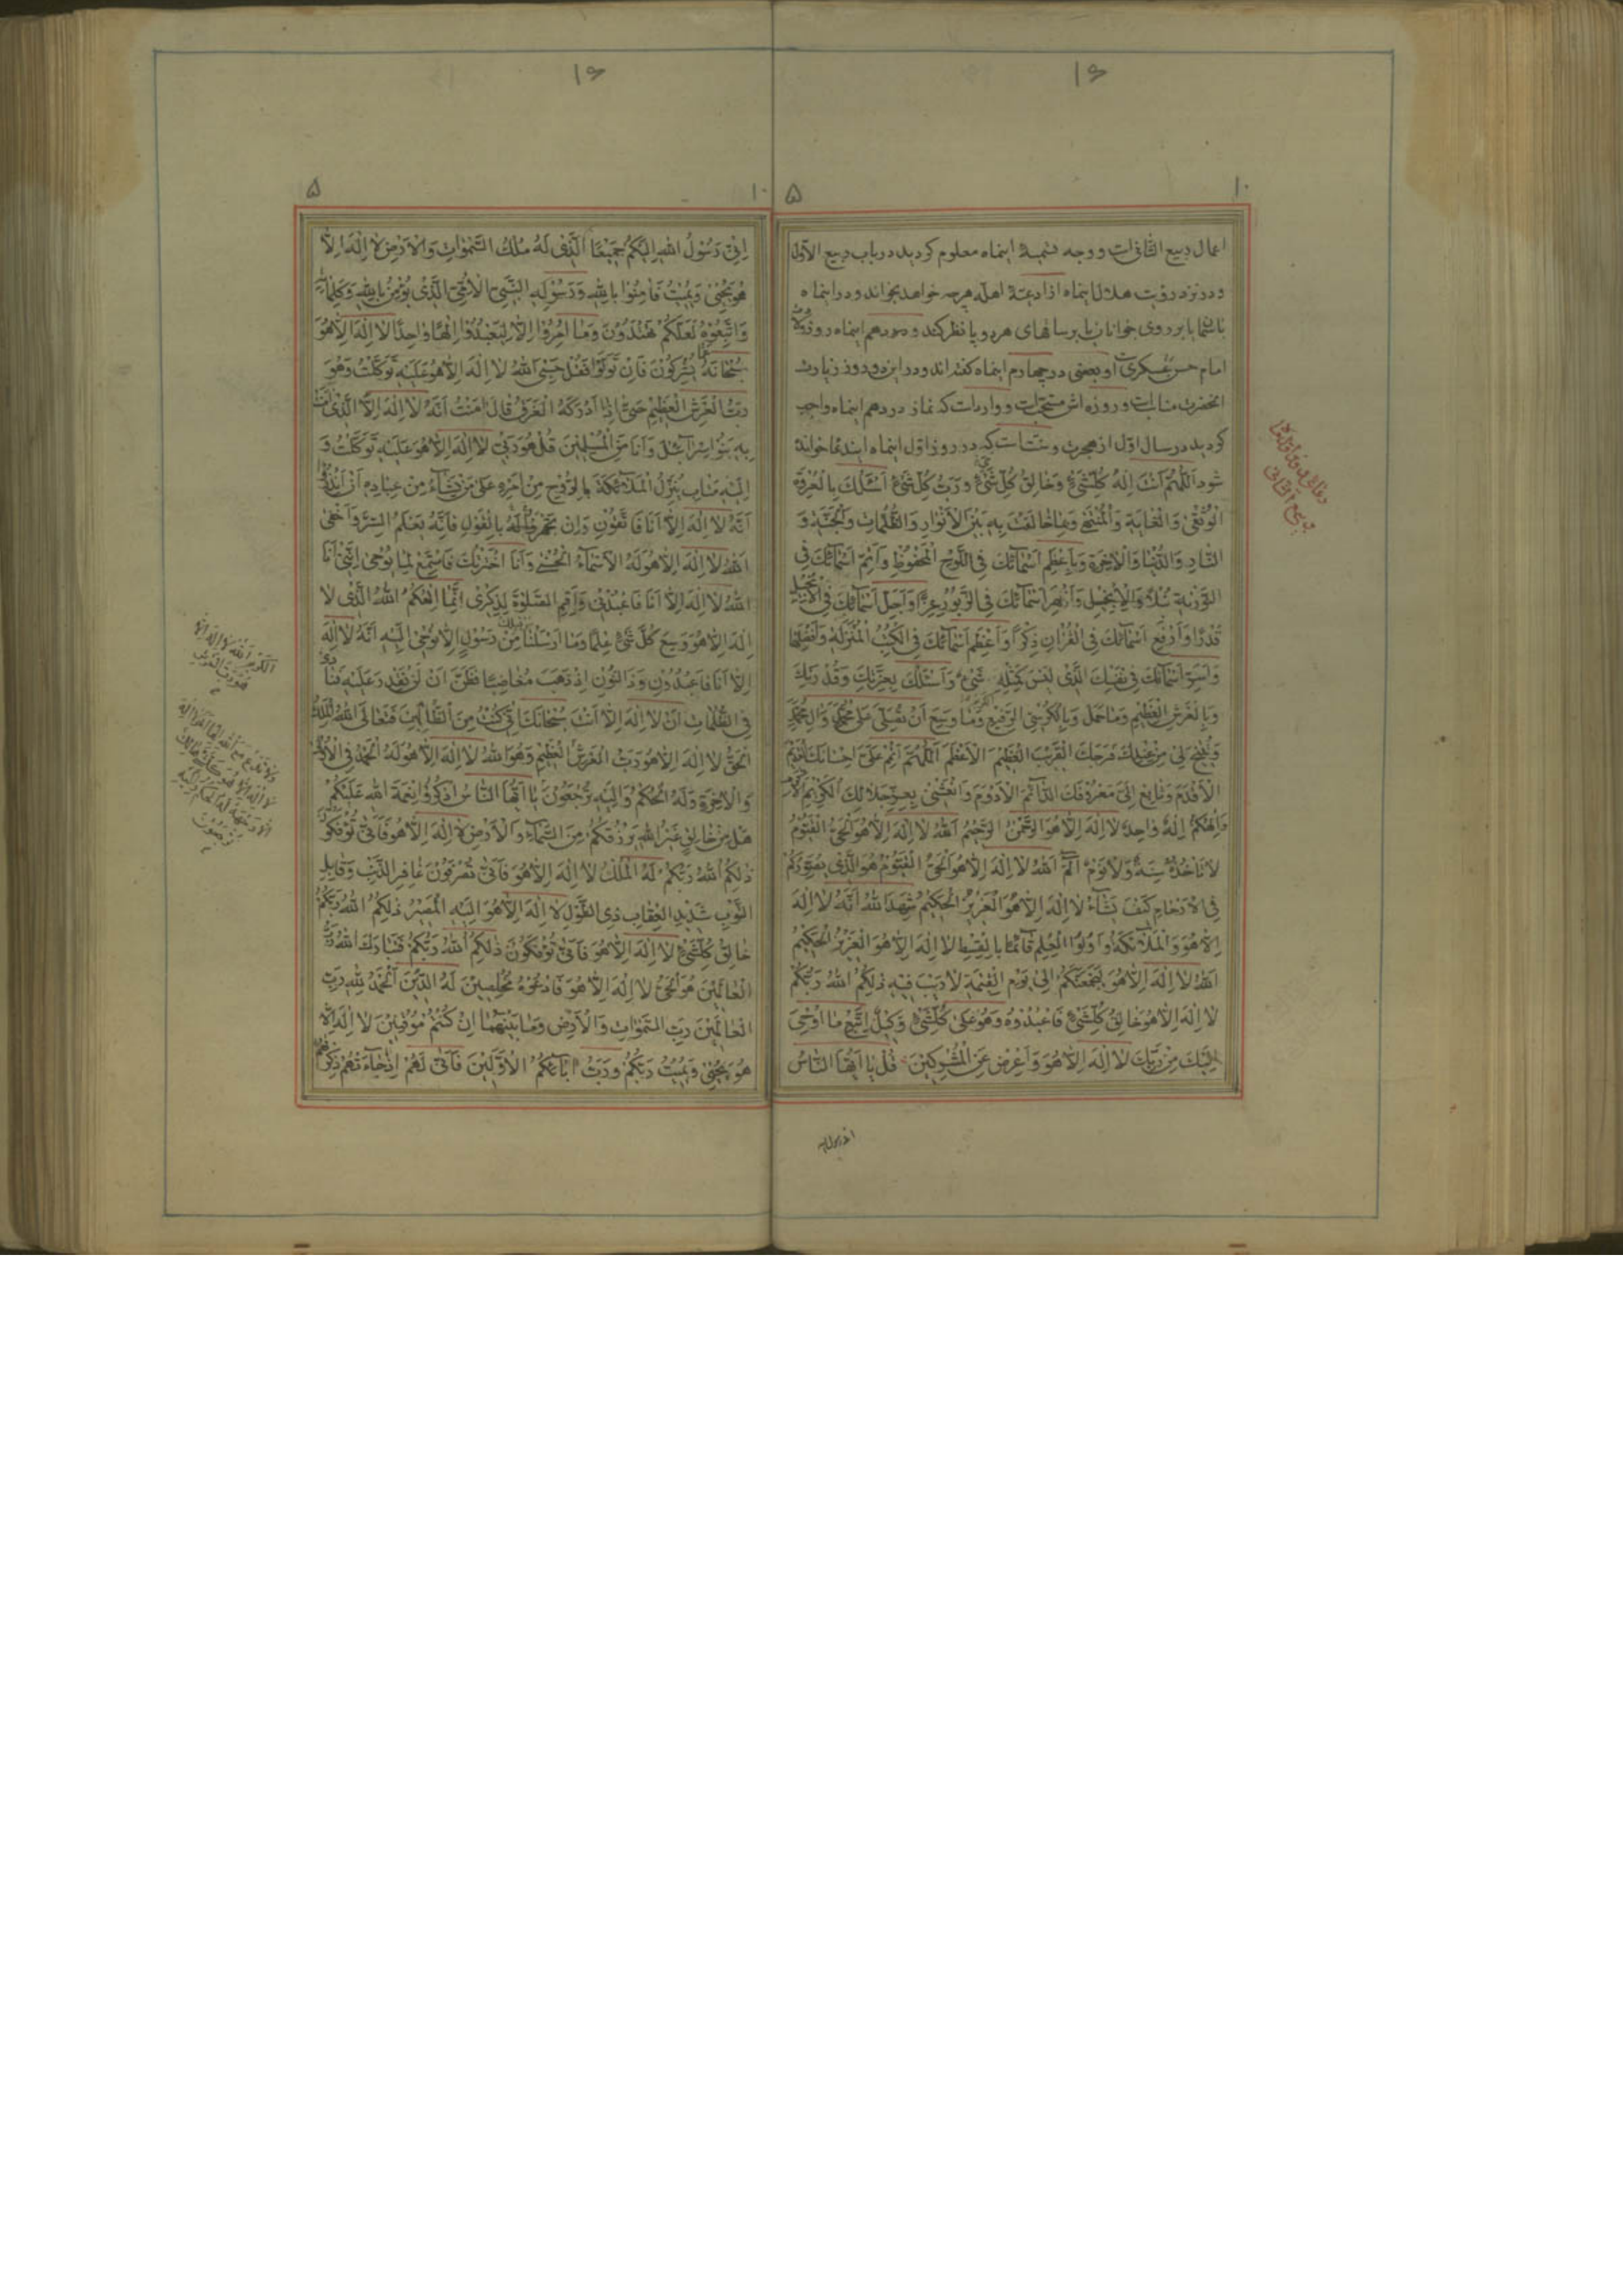 اعمال ربیع الثانی است و وجه تسمیهٔ اینماه معلوم کردید در باب ربیع الاول
و در نزد رؤیت هلال اینماه از ادعیهٔ اهله هر چه خواهد بخواند و در اینماه
امام حسن عسکری است و بعضی در چهارم اینماه کفته اند و در این دو روز زیارت
انحضرت مناسبات و روزه اش مستحبات و وارد است که نماز در دهم اینماه واجب
کردید در سال اول از هجرت و سنت است که در روز اول اینماه ایندعا خوانده
شود اَللّهُمَّ اَنْتَ اِلهُ كُلِّشَیْءٍ وَخالِقُ كُلِّ شَیْءٍ وَرَبُّ كُلِّ شَیْءٍ اَسْئَلُكَ بِالْعُرْوَةِ
الْوُثْقی وَالْغایَةِ وَالْمُنْتَهی وَبِما خالَفْتَ بِهِ بَیْنَ الاَنْوارِ وَالظُّلُماتِ وَالْجَنَّةِ وَ
النّارِ وَالدُّنْیا وَالاخِرَةِ وَبِاَعْظَمِ اَسْمآئِكَ فِی اللَّوْحِ الْمَحْفُوظِ وَاَتَمِّ اَسْمآئِكَ فِی
التَّوْریةِ نُبْلاً وَاَزْهَرِ اَسْمآئِكَ فِی الزَّبُورِ عِزًّا وَاَجَلِّ اَسْمآئِكَ فِی الاِنْجیلِ
قَدْرًا وَاَرْفَعِ اَسْمآئِكَ فِی الْقُرْانِ ذِكْرًا وَاَعْظَمِ اَسْمآئِكَ فِی الْكُتُبِ الْمُنْزَلَةِ وَاَفْضَلِها
وَاَسَرِّ اَسْمآئِكَ فی نَفْسِكَ الَّذی لَیْسَ كَمِثْلِهِ شَیْءٌ وَاَسْئَلُكَ بِعِزَّتِكَ وَقُدْرَتِكَ
وَبِالْعَرْشِ الْعَظیمِ وَما حَمَلَ وَبِالْكُرْسِیِّ الْكَریمِ وَما وَسِعَ اَنْ تُصَلِّیَ عَلی مُحَمَّدٍ وَالِ مُحَمَّدٍ
وَتُبیحَ لی مِنْ عِنْدِكَ فَرَجَكَ الْقَریبَ الْعَظیمَ الاَعْظَمَ اَللّهُمَّ اَتْمِمْ عَلَیَّ اِحْسانَكَ الْقَدیمَ
الاَقْدَمَ وَتابِعْ اِلَیَّ مَعْرُوفَكَ الدّآئِمَ الاَدْوَمَ وَانْعَشْنی بِعِزِّ جَلالِكَ الْكَریمِ الاَكْرَمِ
وَاِلهُكُمْ اِلهٌ واحِدٌ لا اِلهَ اِلاّ هُوَ الرَّحْمنُ الرَّحیمُ اَللهُ لا اِلهَ اِلاّ هُوَ الْحَیُّ الْقَیُّومُ
لا تَاْخُذُهُ سِنَةٌ وَلا نَوْمٌ الم اَللهُ لا اِلهَ اِلاّ هُوَ الْحَیُّ الْقَیُّومُ هُوَ الَّذی یُصَوِّرُكُمْ
فِی الاَرْحامِ كَیْفَ یَشآءُ لا اِلهَ اِلاّ هُوَ الْعَزیزُ الْحَكیمُ شَهِدَ اللهُ اَنَّهُ لا اِلهَ
اِلاّ هُوَ وَالْمَلآئِكَةُ وَاُولُوا الْعِلْمِ قآئِمًا بِالْقِسْطِ لا اِلهَ اِلاّ هُوَ الْعَزیزُ الْحَكیمُ
اَللهُ لا اِلهَ اِلاّ هُوَ لَیَجْمَعَنَّكُمْ اِلی یَوْمِ الْقِیمَةِ لا رَیْبَ فیهِ ذلِكُمُ اللهُ رَبُّكُمْ
لا اِلهَ اِلاّ هُوَ خالِقُ كُلِّشَیْءٍ فَاعْبُدُوهُ وَهُوَ عَلی كُلِّشَیْءٍ وَكیلٌ اِتَّبِعْ ما اُوحِیَ
اِلَیْكَ مِنْ رَبِّكَ لا اِلهَ اِلاّ هُوَ وَاَعْرِضْ عَنِ الْمُشْرِكینَ قُلْ یا اَیُّهَا النّاسُ
اِنّی رَسُولُ اللهِ اِلَیْكُمْ جَمیعًا الَّذی لَهُ مُلْكُ السَّمواتِ وَالاَرْضِ لا اِلهَ اِلاّ
هُوَ یُحْیی وَیُمیتُ فَامِنُوا بِاللهِ وَرَسُولِهِ النَّبِیِّ الاُمِّیِّ الَّذی یُؤْمِنُ بِاللهِ وَكَلِماتِهِ
وَاتَّبِعُوهُ لَعَلَّكُمْ تَهْتَدُونَ وَما اُمِرُوا اِلاّ لِیَعْبُدُوا اِلهًا واحِدًا لا اِلهَ اِلاّ هُوَ
سُبْحانَهُ عَمّا یُشْرِكُونَ فَاِنْ تَوَلَّوْا فَقُلْ حَسْبِیَ اللهُ لا اِلهَ اِلاّ هُوَ عَلَیْهِ تَوَكَّلْتُ وَهُوَ
رَبُّ الْعَرْشِ الْعَظیمِ حَتّی اِذا اَدْرَكَهُ الْغَرَقُ قالَ امَنْتُ اَنَّهُ لا اِلهَ اِلاَّ الَّذی امَنَتْ
بِهِ بَنُوا اِسْرآئیلَ وَاَنَا مِنَ الْمُسْلِمینَ قُلْ هُوَ رَبّی لا اِلهَ اِلاّ هُوَ عَلَیْهِ تَوَكَّلْتُ وَ
اِلَیْهِ مَتابِ یُنَزِّلُ الْمَلآئِكَةَ بِالرُّوحِ مِنْ اَمْرِهِ عَلی مَنْ یَشآءُ مِنْ عِبادِهِ اَنْ اَنْذِرُوا
اَنَّهُ لا اِلهَ اِلاّ اَنَا فَاتَّقُونِ وَاِنْ تَجْهَرْ بِالْقَوْلِ فَاِنَّهُ یَعْلَمُ السِّرَّ وَاَخْفی
اَللهُ لا اِلهَ اِلاّ هُوَ لَهُ الاَسْمآءُ الْحُسْنی وَاَنَا اخْتَرْتُكَ فَاسْتَمِعْ لِما یُوحی اِنَّنی اَنَا
اللهُ لا اِلهَ اِلاّ اَنَا فَاعْبُدْنی وَاَقِمِ الصَّلوةَ لِذِكْری اِنَّما اِلهُكُمُ اللهُ الَّذی لا
اِلهَ اِلاّ هُوَ وَسِعَ كُلَّ شَیْءٍ عِلْمًا وَما اَرْسَلْنا مِنْ قَبْلِكَ مِنْ رَسُولٍ اِلاّ نُوحی اِلَیْهِ اَنَّهُ لا اِلهَ
اِلاّ اَنَا فَاعْبُدُونِ وَذَا النُّونِ اِذْ ذَهَبَ مُغاضِبًا فَظَنَّ اَنْ لَنْ نَقْدِرَ عَلَیْهِ فَنادی
فِی الظُّلُماتِ اَنْ لا اِلهَ اِلاّ اَنْتَ سُبْحانَكَ اِنّی كُنْتُ مِنَ الظّالِمینَ فَتَعالَی اللهُ الْمَلِكُ
الْحَقُّ لا اِلهَ اِلاّ هُوَ رَبُّ الْعَرْشِ الْعَظیمِ وَهُوَ اللهُ لا اِلهَ اِلاّ هُوَ لَهُ الْحَمْدُ فِی الاُولی
وَالاخِرَةِ وَلَهُ الْحُكْمُ وَاِلَیْهِ تُرْجَعُونَ یا اَیُّهَا النّاسُ اذْكُرُوا نِعْمَةَ اللهِ عَلَیْكُمْ
هَلْ مِنْ خالِقٍ غَیْرُ اللهِ یَرْزُقُكُمْ مِنَ السَّمآءِ وَالاَرْضِ لا اِلهَ اِلاّ هُوَ فَاَنّی تُؤْفَكُونَ
ذلِكُمُ اللهُ رَبُّكُمْ لَهُ الْمُلْكُ لا اِلهَ اِلاّ هُوَ فَاَنّی تُصْرَفُونَ غافِرِ الذَّنْبِ وَقابِلِ
التَّوْبِ شَدیدِ الْعِقابِ ذِی الطَّوْلِ لا اِلهَ اِلاّ هُوَ اِلَیْهِ الْمَصیرُ ذلِكُمُ اللهُ رَبُّكُمْ
خالِقُ كُلِّشَیْءٍ لا اِلهَ اِلاّ هُوَ فَاَنّی تُؤْفَكُونَ ذلِكُمُ اللهُ رَبُّكُمْ فَتَبارَكَ اللهُ رَبُّ
الْعالَمینَ هُوَ الْحَیُّ لا اِلهَ اِلاّ هُوَ فَادْعُوهُ مُخْلِصینَ لَهُ الدّینَ اَلْحَمْدُ لِلّهِ رَبِّ
الْعالَمینَ رَبِّ السَّمواتِ وَالاَرْضِ وَما بَیْنَهُما اِنْ كُنْتُمْ مُوقِنینَ لا اِلهَ اِلاّ
هُوَ یُحْیی وَیُمیتُ رَبُّكُمْ وَرَبُّ ابآئِكُمُ الاَوَّلینَ فَاَنّی لَهُمْ اِذا جآءَتْهُمْ ذِكْریهُمْ